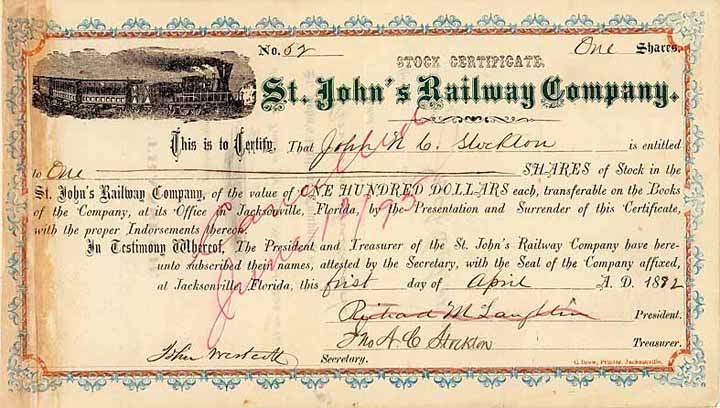 No. 52 One Shares.
STOCK CERTIFICATE.
St. John's Railway Company.
This is to Certify, That John N. C. Stockton is entitled
to One SHARES of Stock in the
St. John's Railway Company, of the value of ONE HUNDRED DOLLARS each, transferable on the Books
of the Company, at its Office in Jacksonville, Florida, by the Presentation and Surrender of this Certificate,
with the proper Indorsements thereon.
In Testimony Whereof, The President and Treasurer of the St. John's Railway Company have here-
unto subscribed their names, attested by the Secretary, with the Seal of the Company affixed,
at Jacksonville, Florida, this first day of April A. D. 1892
Richard McLaughlin President.
Jno. N. C. Stockton Treasurer.
John Westcott Secretary.
C. Drew, Printer, Jacksonville.
Cancelled
June 18/95